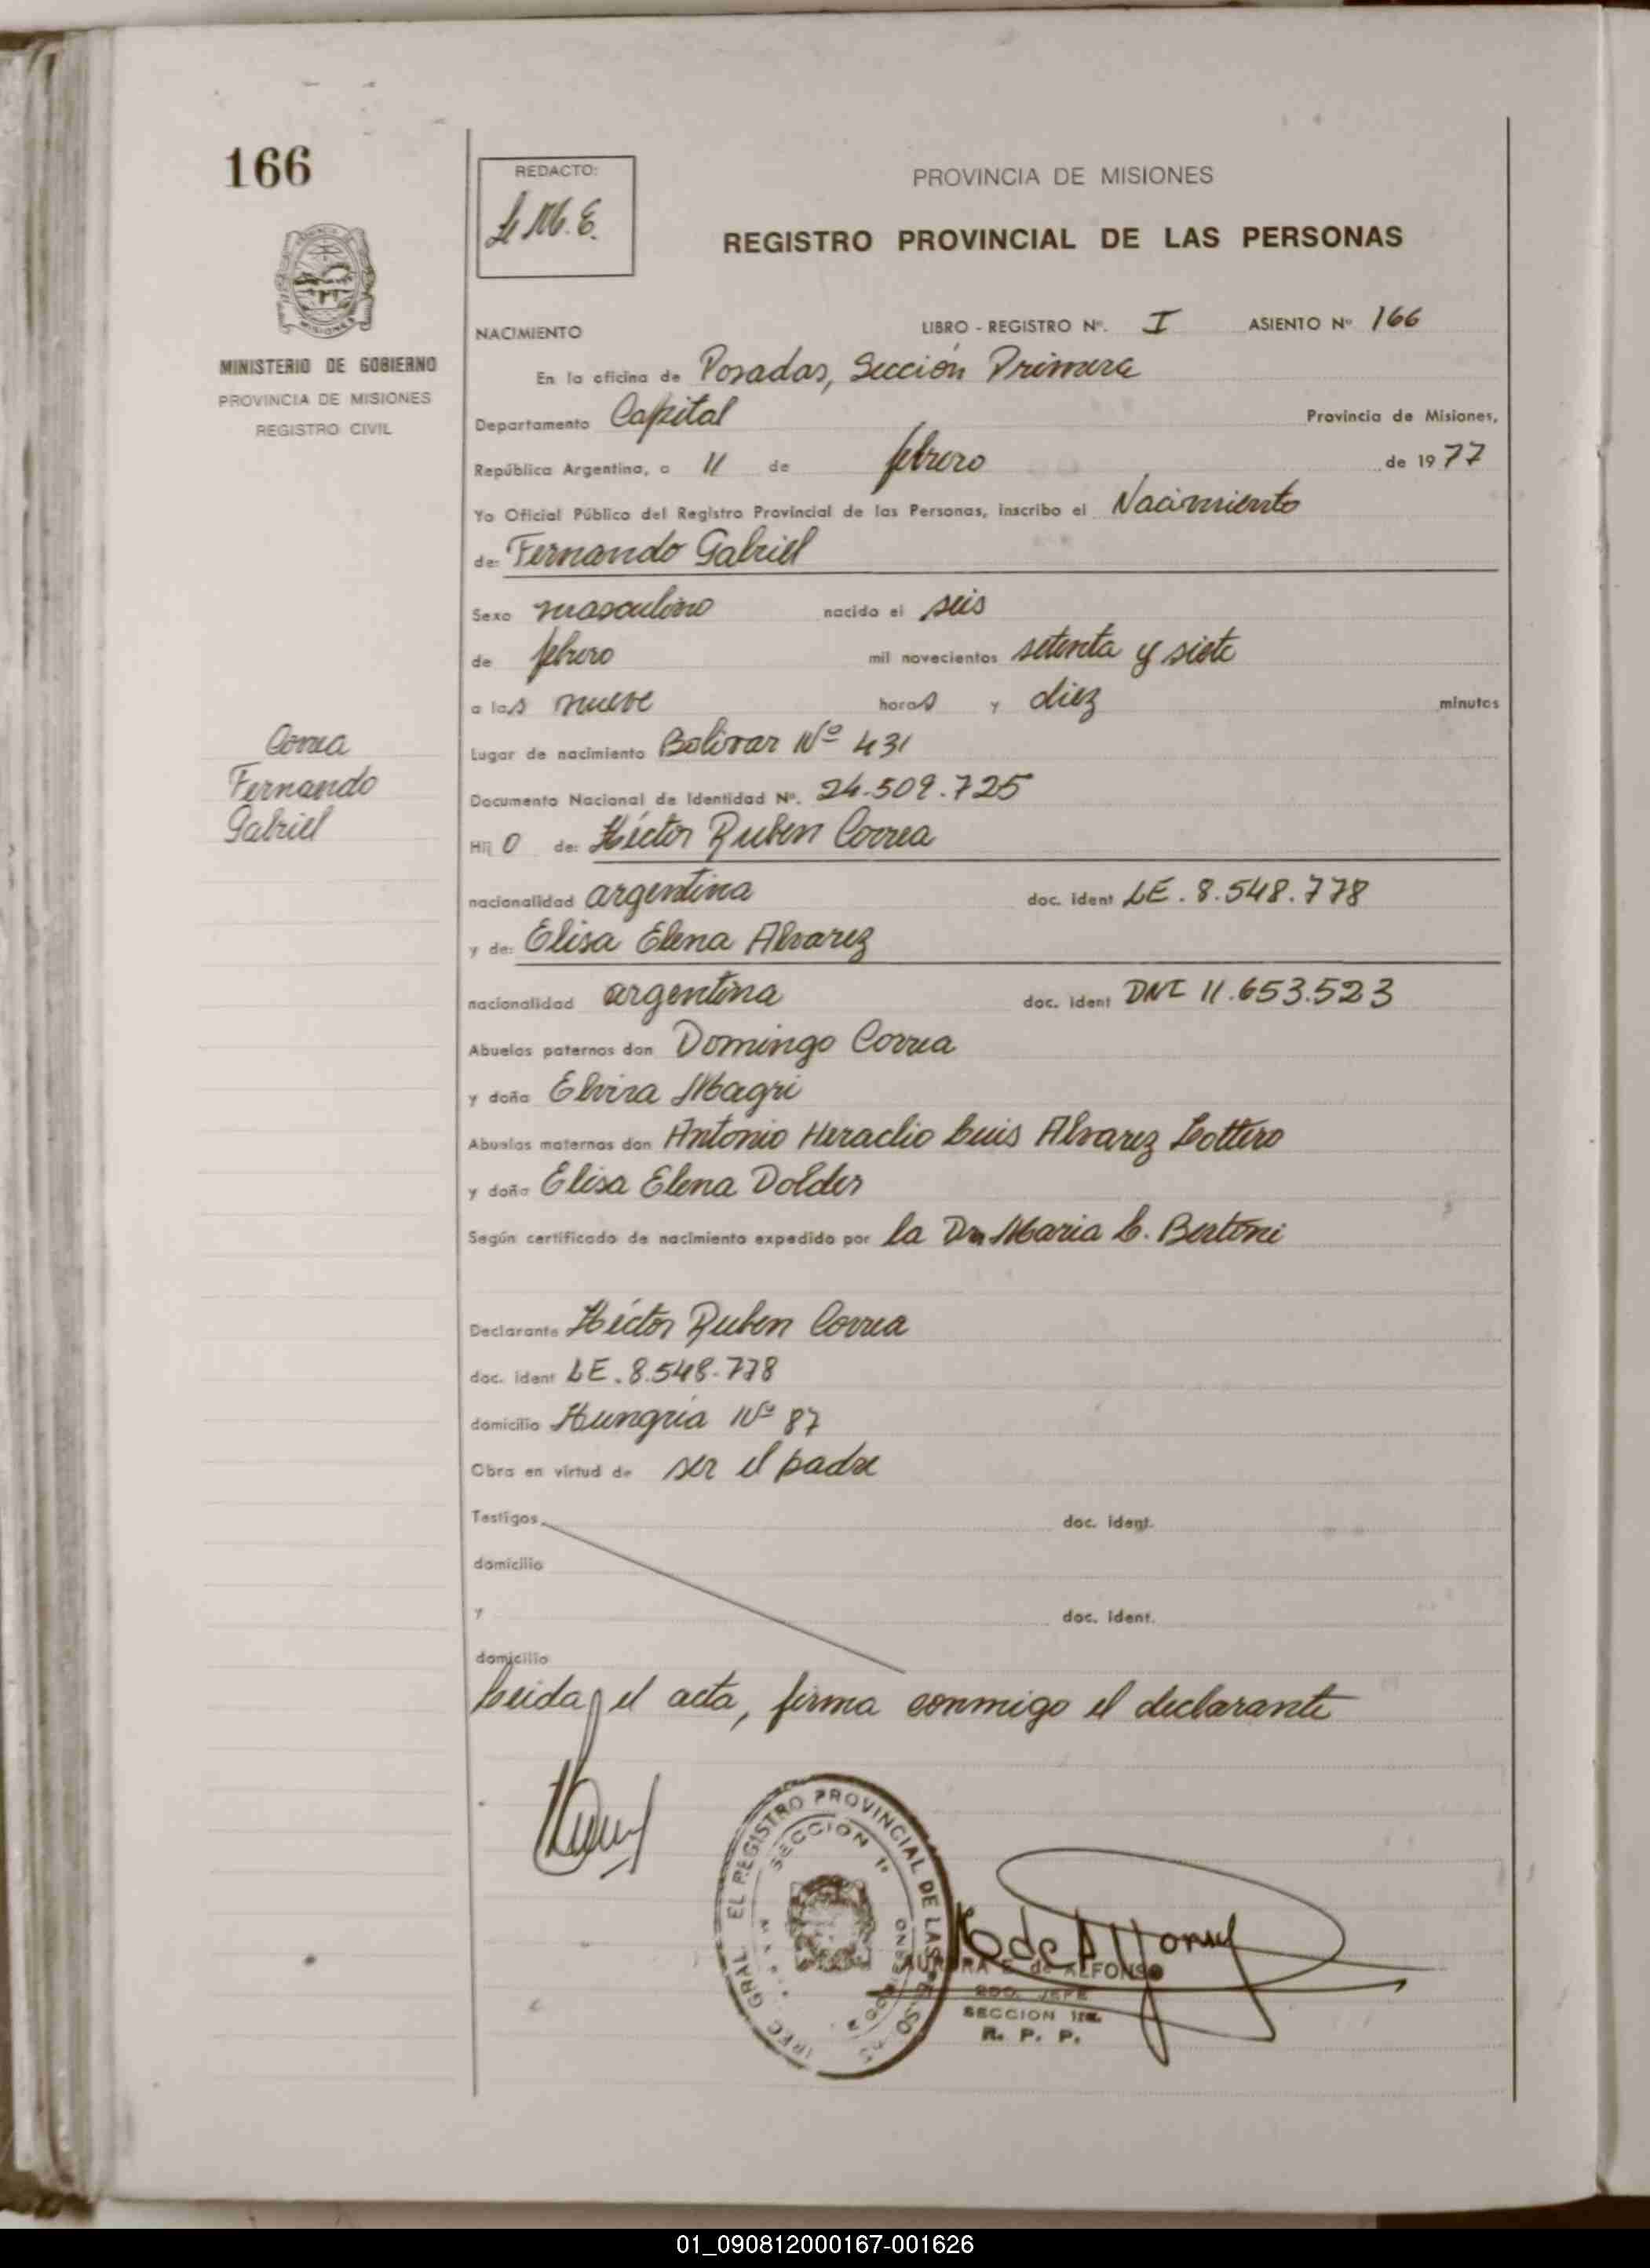 166
REDACTO:
L.M.E.
PROVINCIA DE MISIONES
REGISTRO PROVINCIAL DE LAS PERSONAS
MINISTERIO DE GOBIERNO
PROVINCIA DE MISIONES
REGISTRO CIVIL
NACIMIENTO LIBRO - REGISTRO Nº. I ASIENTO Nº 166
En la oficina de Posadas, Sección Primera
Departamento Capital Provincia de Misiones,
República Argentina, a 11 de febrero de 1977
Yo Oficial Público del Registro Provincial de las Personas, inscribo el Nacimiento
de: Fernando Gabriel
Sexo masculino nacido el seis
de febrero mil novecientos setenta y siete
a las nueve horas y diez minutos
Lugar de nacimiento Bolivar Nº 431
Correa
Fernando
Gabriel
Documento Nacional de Identidad Nº. 24.509.725
Hijo de: Héctor Ruben Correa
nacionalidad argentina doc. ident LE. 8.548.778
y de: Elisa Elena Alvarez
nacionalidad argentina doc. ident DNI 11.653.523
Abuelos paternos don Domingo Correa
y doña Elvira Magri
Abuelos maternos don Antonio Heraclio Luis Alvarez Lottero
y doña Elisa Elena Dolder
Según certificado de nacimiento expedido por la Dra Maria L. Bertoni
Declarante Héctor Ruben Correa
doc. ident LE. 8.548.778
domicilio Hungria Nº 87
Obra en virtud de ser el padre
Testigos doc. ident.
domicilio
y doc. ident.
domicilio
Leida el acta, firma conmigo el declarante
EL REGISTRO PROVINCIAL DE LAS
SECCION 1ª
GRAL
AURORA E. de ALFONSO
2DO. JEFE
SECCION 1ra.
R. P. P.
01_090812000167-001626